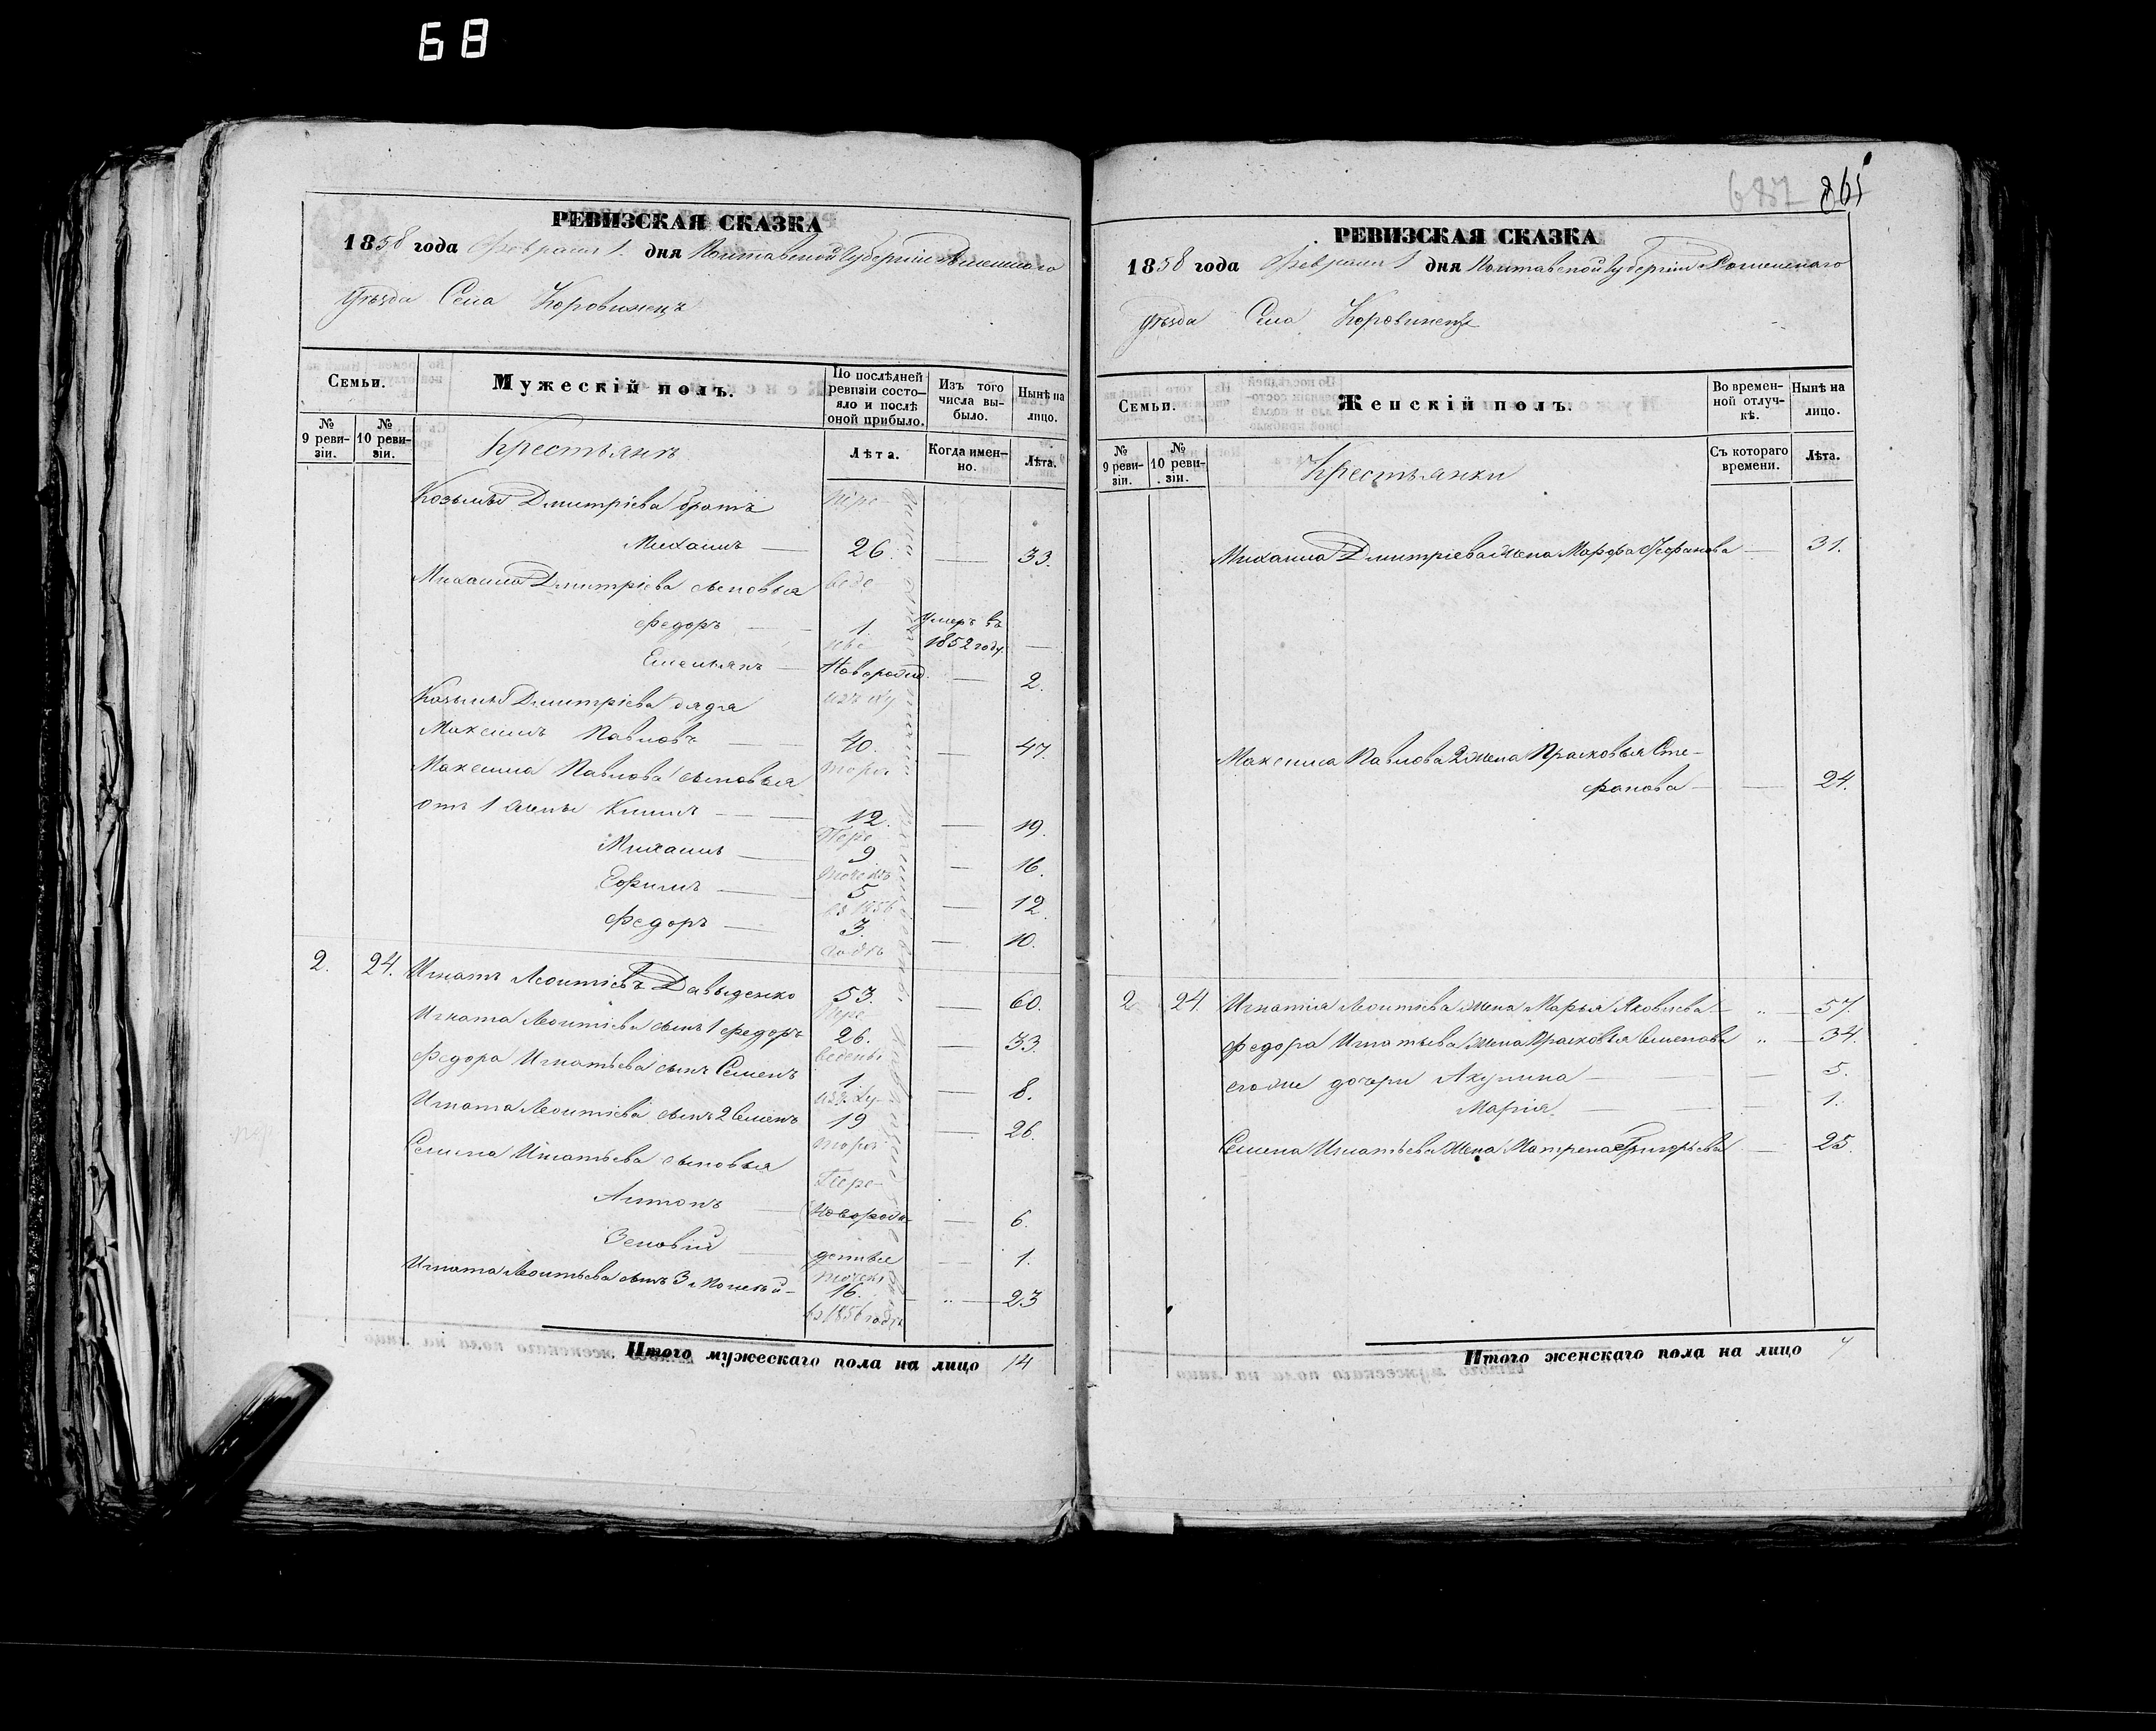 68
РЕВИЗСКАЯ СКАЗКА
1858 года Февраля 1. дня Полтавской Губерніи Роменскаго
Уѣзда Села Коровинецъ
Семьи.
Мужескій полъ.
По послѣдней ревизіи состояло и послѣ оной прибыло.
Изъ того числа выбыло.
Нынѣ на лицо.
№ 9 ревизіи.
№ 10 ревизіи.
Крестьянъ
Лѣта.
Когда именно.
Лѣта.
Козьмы Дмитріева братъ
Михаилъ — 26. — 33.
Михаила Дмитріева сыновья
Федоръ — 1 Умеръ въ 1852 году —
Емельянъ — Новорожд. — 2.
Козьмы Дмитріева дядя
Максимъ Павловъ — 40. — 47.
Максима Павлова сыновья
отъ 1 жены Климъ — 12. — 19.
Михаилъ — 9 — 16.
Ефимъ — 5 — 12
Федоръ — 3. — 10.
2. 24. Игнатъ Леонтіевъ Давыденко 53. — 60.
Игната Леонтіева сынъ 1 Федоръ 26. — 33
Федора Игнатьева сынъ Семенъ 1 — 8.
Игната Леонтіева сынъ 2 Семенъ 19 — 26.
Семена Игнатьева сыновья
Антонъ — Новорож- — 6.
Зеновій — денные — 1.
Игната Леонтьева сынъ 3 Моисей — 16. „ — 23
Пере
веде
изъ ху
тора
Пере
въ 1856
годѣ
Пере
ведены
изъ ху
тора
Пере
въ 1856 годѣ
Итого мужескаго пола на лицо 14
687 865
РЕВИЗСКАЯ СКАЗКА
1858 года Февраля 1 дня Полтавской Губерніи Роменскаго
Уѣзда Села Коровинецъ
Семьи.
Женскій полъ.
Во временной отлучкѣ.
Нынѣ на лицо.
№ 9 ревизіи.
№ 10 ревизіи.
Крестьянки
Съ котораго времени.
Лѣта.
Михаила Дмитріева жена Марфа — 31.
Максима Павлова 2 жена Прасковья Сте-
фанова — — 24.
2 24 Игнатія Леонтіева жена Марья Яковлева — „ — 57.
Федора Игнатьева жена Прасковья Семенова „ — 34.
дочери Акулина — — 5.
Марія. — — 1.
Семена Игнатьева жена Матрена Григорьева — 25.
Итого женскаго пола на лицо 7